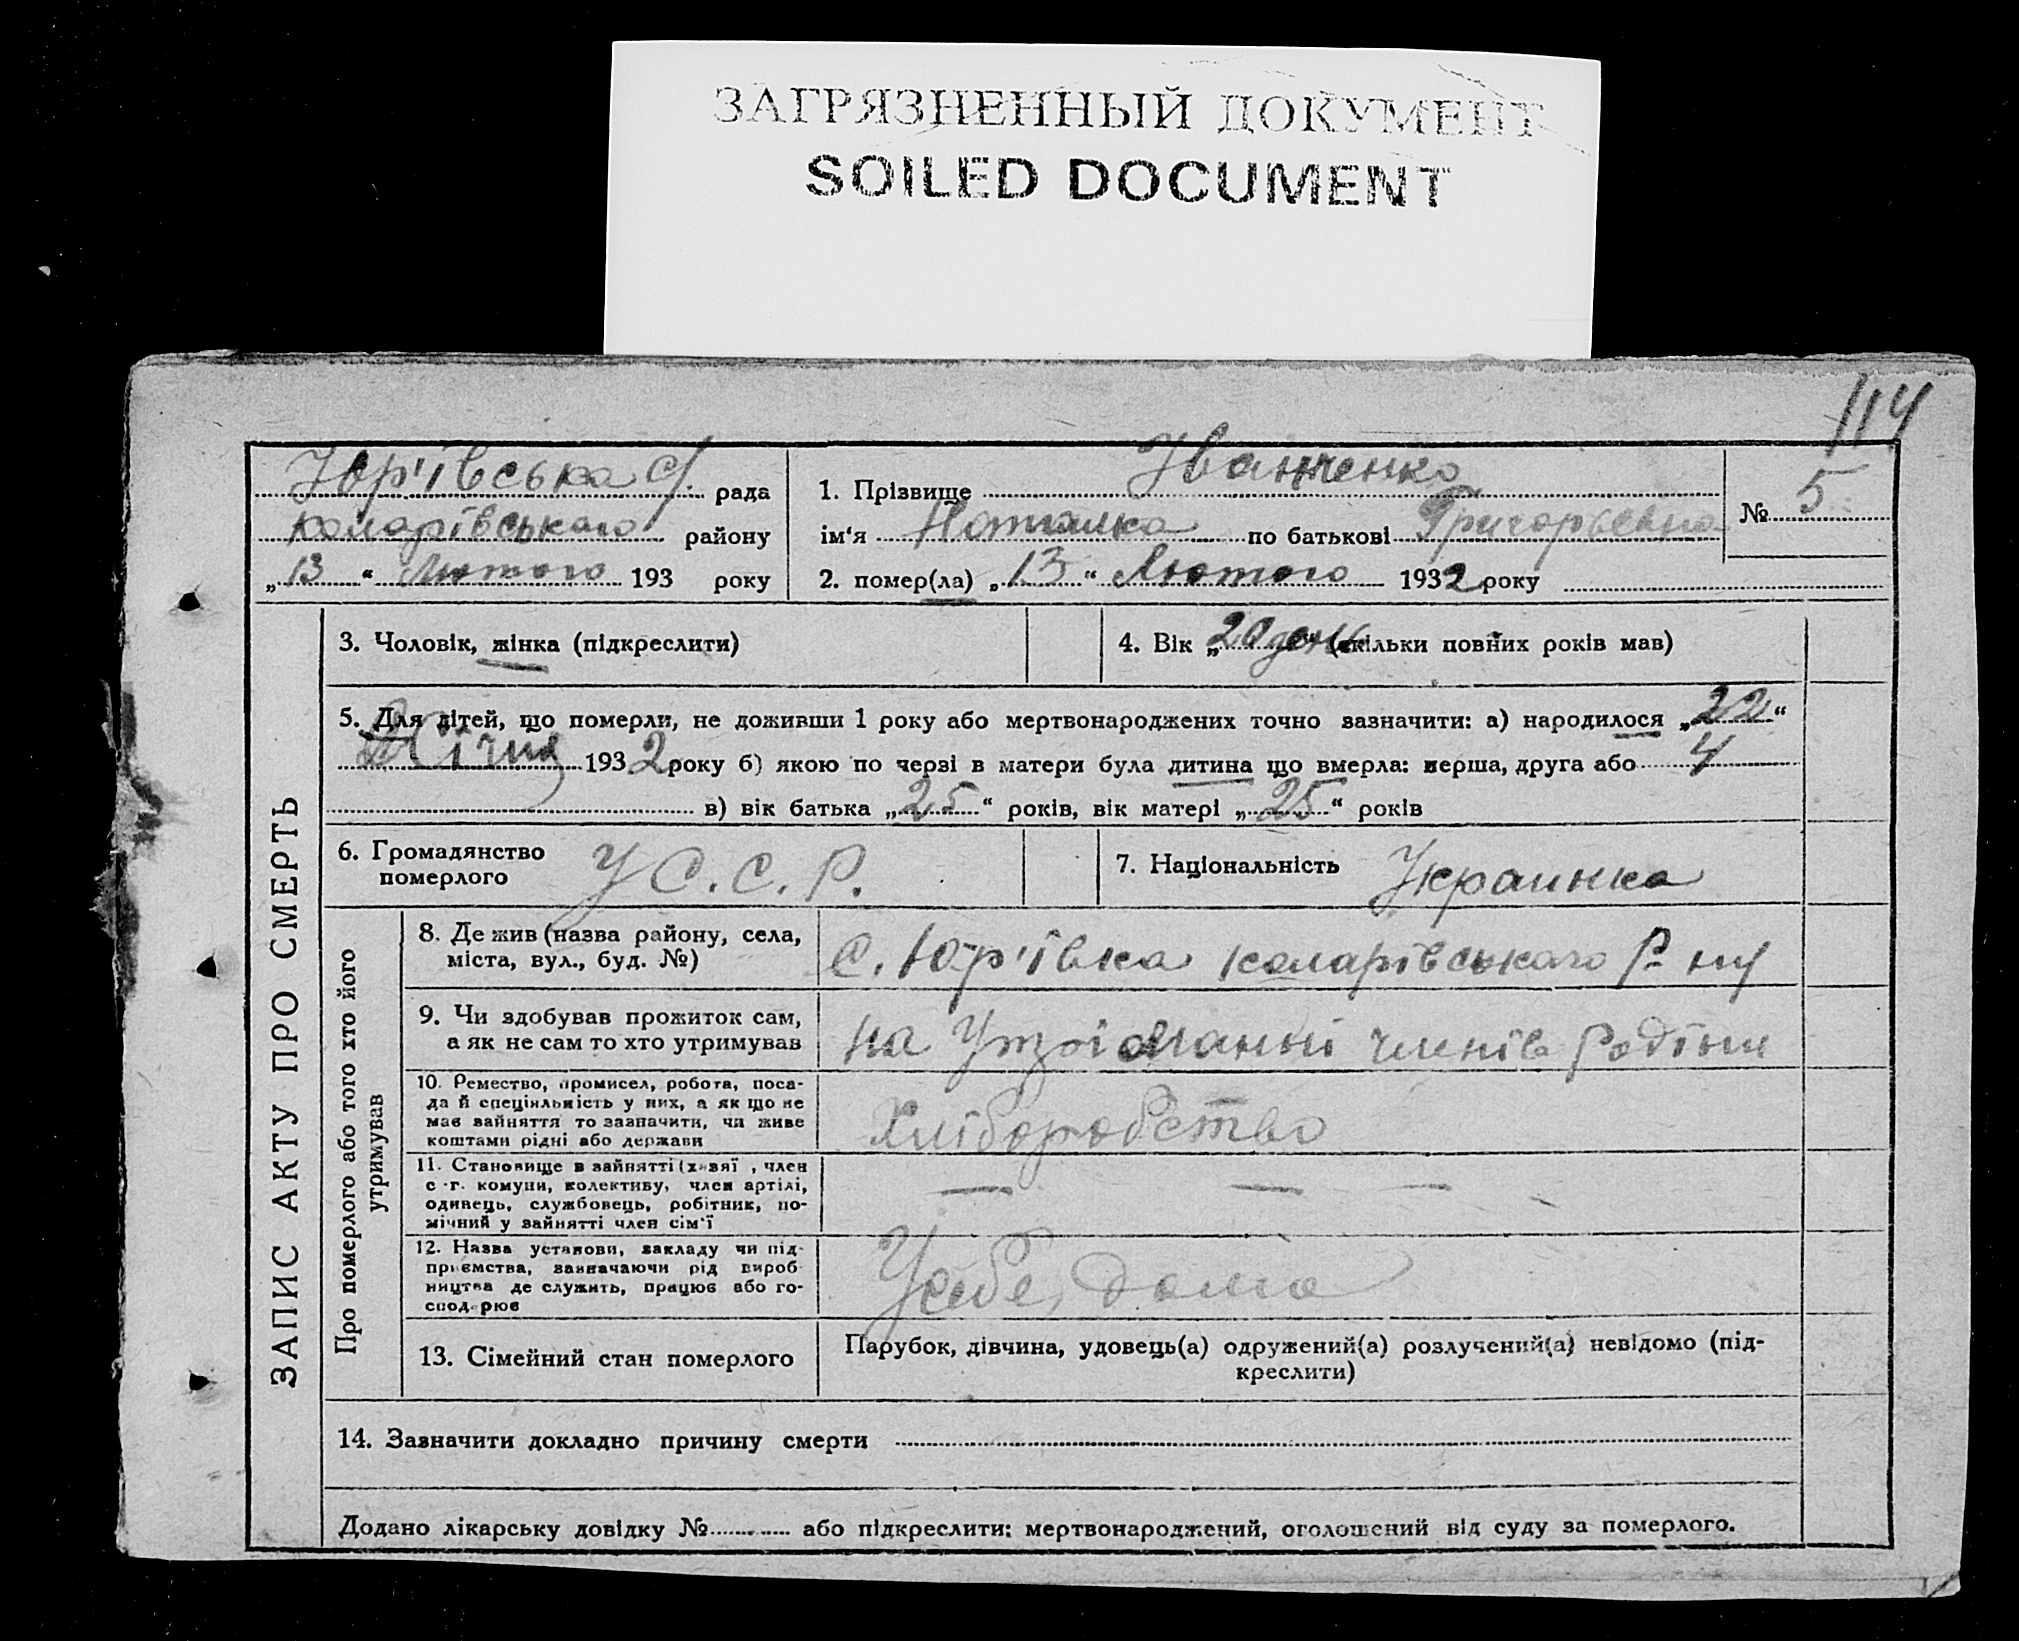 ЗАГРЯЗНЕННЫЙ ДОКУМЕНТ
SOILED DOCUMENT
114
Юр'ївська с/. рада
Коларівського району
„13“ Лютого 193 року
1. Прізвище Іванченко
ім'я Наталка по батькові Григорьевна
2. помер(ла) „13“ Лютого 1932 року
№ 5
ЗАПИС АКТУ ПРО СМЕРТЬ
3. Чоловік, жінка (підкреслити)
4. Вік „20 день“ (скільки повних років мав)
5. Для дітей, що померли, не доживши 1 року або мертвонароджених точно зазначити: а) народилося „22“
Січня 1932 року б) якою по черзі в матери була дитина що вмерла: перша, друга або 4
в) вік батька „25“ років, вік матері „25“ років
6. Громадянство
померлого
У С. С. Р.
7. Національність Украинка
Про померлого або того хто його
утримував
8. Де жив (назва району, села,
міста, вул., буд. №)
с. Юр'ївка Коларівського Р-ну
9. Чи здобував прожиток сам,
а як не сам то хто утримував
на Утріманні членів Родіни
10. Ремество, промисел, робота, поса-
да й спеціяльність у них, а як що не
має зайняття то зазначити, чи живе
коштами рідні або держави
Хліборобство
11. Становище в зайнятті (хазяї , член
с.-г. комуни, колективу, член артілі,
одинець, службовець, робітник, по-
мічний у зайнятті член сім'ї
— — —
12. Назва установи, закладу чи під-
приємства, зазначаючи рід вироб-
ництва де служить, працює або го-
сподарює
У себе, дома
13. Сімейний стан померлого
Парубок, дівчина, удовець(а) одружений(а) розлучений(а) невідомо (під-
креслити)
14. Зазначити докладно причину смерти
Додано лікарську довідку № або підкреслити: мертвонароджений, оголошений від суду за померлого.